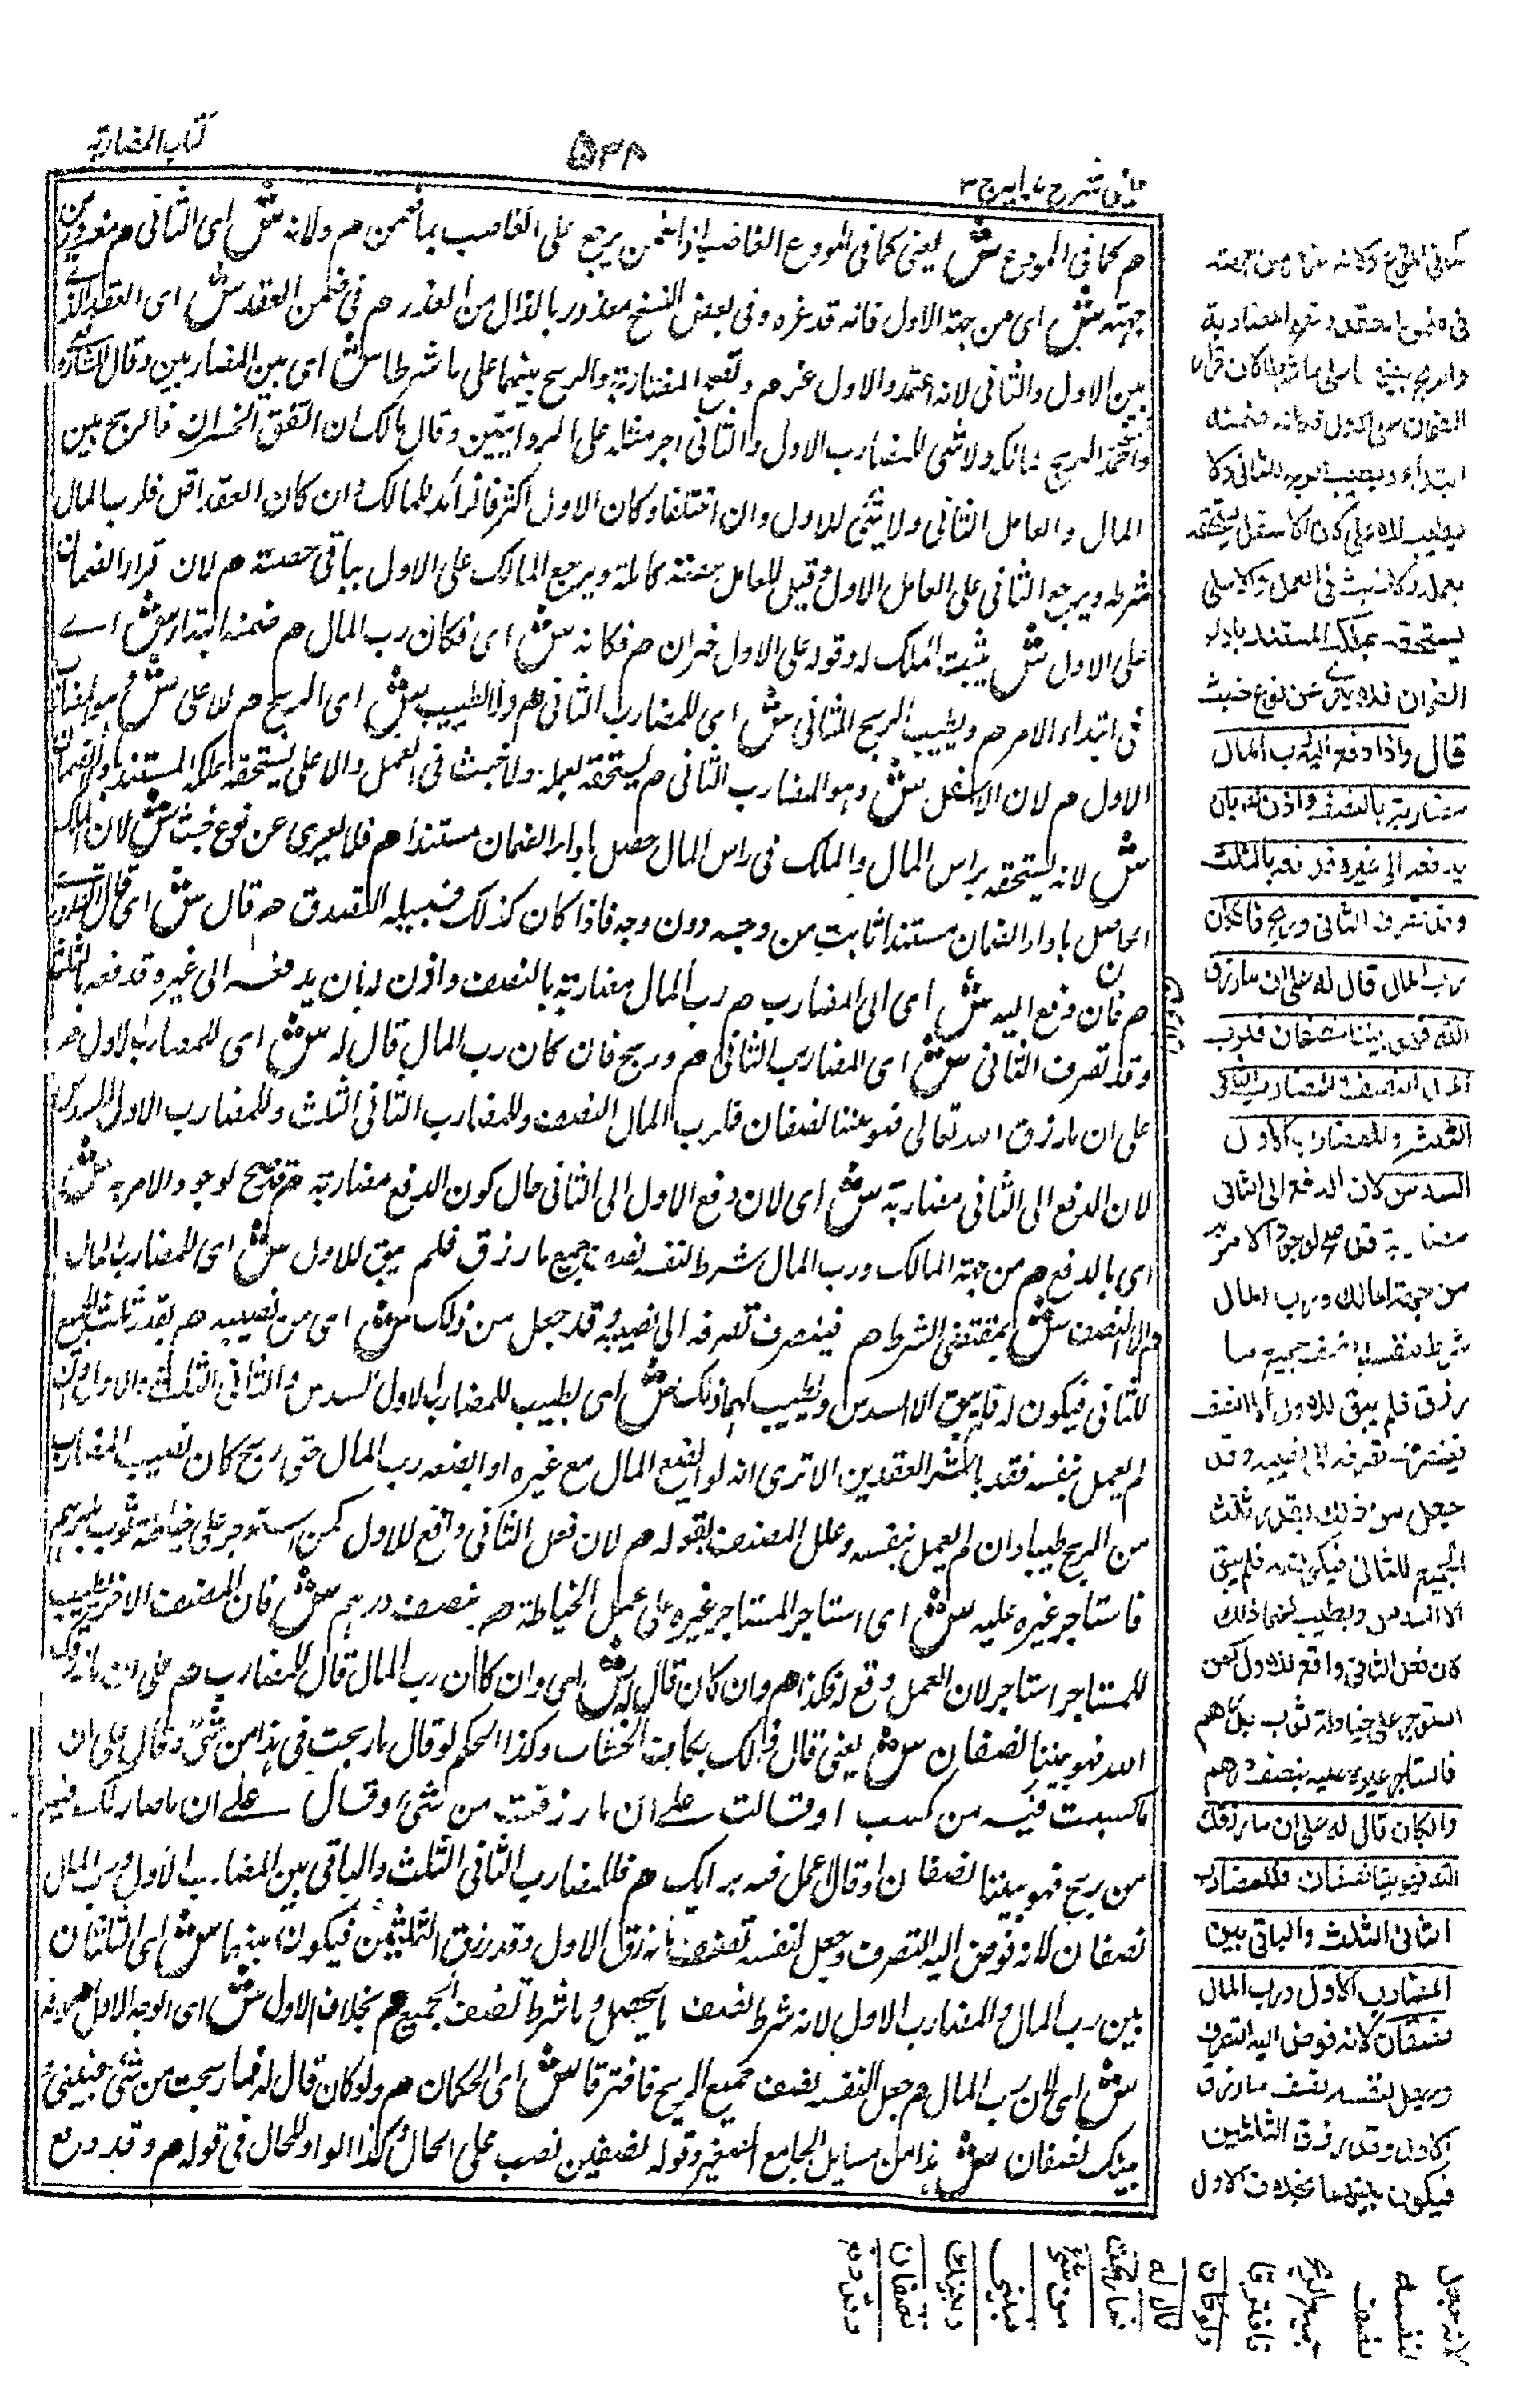 كتاب المضاربة
۵۳۸
عينى شرح هدايه ج ٣
م كما في المودع ش يعني كما في المودع الغاصب اذا ضمن يرجع على الغاصب بما ضمن م ولانه ش اى الثاني م مغرور من
جهته ش اى من جهة الاول فانه قد غره وفي بعض النسخ معذور بالذال من العذر م في ضمن العقد ش اى العقد الذى
بين الاول والثاني لانه اعتمد والاول غر م وتصح المضاربة والربح بينهما على ما شرطا ش اى بين المضاربين وقال الشافعى
الربح ولا شئ للمضارب الاول وللثاني اجر مثله على الروايتين وقال مالك ان اتفق الخسران فالربح بين
المال والعامل الثاني ولا شئ للاول وان اختلفا وكان الاول اكثر فالزائد للمالك وان كان العقد اقل فلرب المال
شرطه ويرجع الثاني على العامل الاول وقيل للعامل حصته كاملة ويرجع المالك على الاول بباقي حصته م لان قرار الضمان
على الاول ش يثبت الملك له وقوله على الاول خبر ان م فكانه ش اى فكان رب المال م ضمنه ابتداء ش اى
في ابتداء الامر م ويطيب الربح للثاني ش اى للمضارب الثاني م ولا يطيب ش اى الربح م للاعلى ش وهو المضارب
الاول م لان الاسفل ش وهو المضارب الثاني م يستحقه بعمله ولا خبث في العمل والاعلى يستحقه بملكه المستند باداء الضمان
ش لانه يستحقه براس المال والملك في راس المال حصل باداء الضمان مستندا م فلا يعرى عن نوع خبث ش لان الملك
الحاصل باداء الضمان مستندا ثابت من وجه دون وجه فاذا كان كذلك فسبيله التصدق م قال ش اى قال القدورى
م فان دفع اليه ش اى الى المضارب م رب المال مضاربة بالنصف واذن له بان يدفعه الى غيره وقد دفعه بالثلث
وقد تصرف الثاني ش اى المضارب الثاني م وربح فان كان رب المال قال له ش اى للمضارب الاول م
على ان ما رزق الله تعالى فهو بيننا نصفان فلرب المال النصف وللمضارب الثاني الثلث وللمضارب الاول السدس
لان الدفع الى الثاني مضاربة ش اى لان دفع الاول الى الثاني حال كون الدفع مضاربة م قد صح لوجود الامر به ش
اى بالدفع م من جهة المالك ورب المال شرط لنفسه نصف جميع ما رزق فلم يبق للاول ش اى للمضارب الاول
م الا النصف ش بمقتضى الشرط م فينصرف تصرفه الى نصيبه وقد جعل من ذلك ش اى من نصيبه م بقدر ثلث الجميع
للثاني فيكون له فلم يبق الا السدس ويطيب لهما ذلك ش اى يطيب للمضارب الاول السدس وللثاني الثلث والاول وان
لم يعمل بنفسه فقد باشر العقدين الا ترى انه لو ابضع المال مع غيره او ابضعه رب المال حتى ربح كان نصيب المضارب
من الربح طيبا وان لم يعمل بنفسه وعلل المصنف بقوله م لان فعل الثاني واقع للاول كمن استوجر على خياطة ثوب بدرهم
فاستاجر غيره عليه ش اى استاجر المستاجر غيره على عمل الخياطة م بنصف درهم ش فان النصف الاخر يطيب
للمستاجر استاجر لان العمل وقع له فكذا م وان كان قال له ش اى وان كان رب المال قال للمضارب م على ان ما رزقك
الله فهو بيننا نصفان ش يعني قال ذلك بكاف الخطاب وكذا الحكم لو قال ما ربحت في هذا من شئ وقال على ان
ما كسبت فيه من كسب او قالت على ان ما رزقت من شئ او قال على ان ما صار لك فيه
من ربح فهو بيننا نصفان او قال اعمل فيه برايك م فللمضارب الثاني الثلث والباقي بين المضارب الاول ورب المال
نصفان لانه فوض اليه التصرف وجعل لنفسه نصف ما رزق الاول وقد رزق الثلثين فيكون بينهما ش اى الثلثان
بين رب المال والمضارب الاول لانه شرط نصف ما يحصل وما شرط نصف الجميع م بخلاف الاول ش اى الوجه الاول م لانه
ش اى لان رب المال م جعل لنفسه نصف جميع الربح فافترقا ش اى الحكمان م ولو كان قال له فما ربحت من شئ فبيني و
بينك نصفان ش هذا من مسايل الجامع الصغير وقوله نصفين نصب على الحال وكذا الواو للحال في قوله م وقد دفع
كما في المودع ولانه مغرور من جهته
في ضمن العقد وتصح المضاربة
والربح بينهما على ما شرطا لان قرار
الضمان على الاول فكانه ضمنه
ابتداء ويطيب الربح للثاني ولا
يطيب للاعلى لان الاسفل يستحقه
بعمله ولا خبث في العمل والاعلى
يستحقه بملكه المستند باداء
الضمان فلا يعرى عن نوع خبث
قال واذا دفع اليه رب المال
مضاربة بالنصف واذن له بان
يدفعه الى غيره فدفعه بالثلث
وقد تصرف الثاني وربح فان كان
رب المال قال له على ان ما رزق
الله فهو بيننا نصفان فلرب
المال النصف وللمضارب الثاني
الثلث وللمضارب الاول
السدس لان الدفع الى الثاني
مضاربة قد صح لوجود الامر به
من جهة المالك ورب المال
شرط لنفسه نصف جميع ما
رزق فلم يبق للاول الا النصف
فينصرف تصرفه الى نصيبه وقد
جعل من ذلك بقدر ثلث
الجميع للثاني فيكون له فلم يبق
الا السدس ويطيب لهما ذلك
لان فعل الثاني واقع للاول كمن
استوجر على خياطة ثوب بدرهم
فاستاجر غيره عليه بنصف درهم
وان كان قال له على ان ما رزقك
الله فهو بيننا نصفان فللمضارب
الثاني الثلث والباقي بين
المضارب الاول ورب المال
نصفان لانه فوض اليه التصرف
وجعل لنفسه نصف ما رزق
الاول وقد رزق الثلثين
فيكون بينهما بخلاف الاول
لانه جعل
لنفسه
نصف
جميع الربح
فافترقا
ولو كان
قال له
فما ربحت
من شئ
فبيني
وبينك
نصفان
وقد دفع